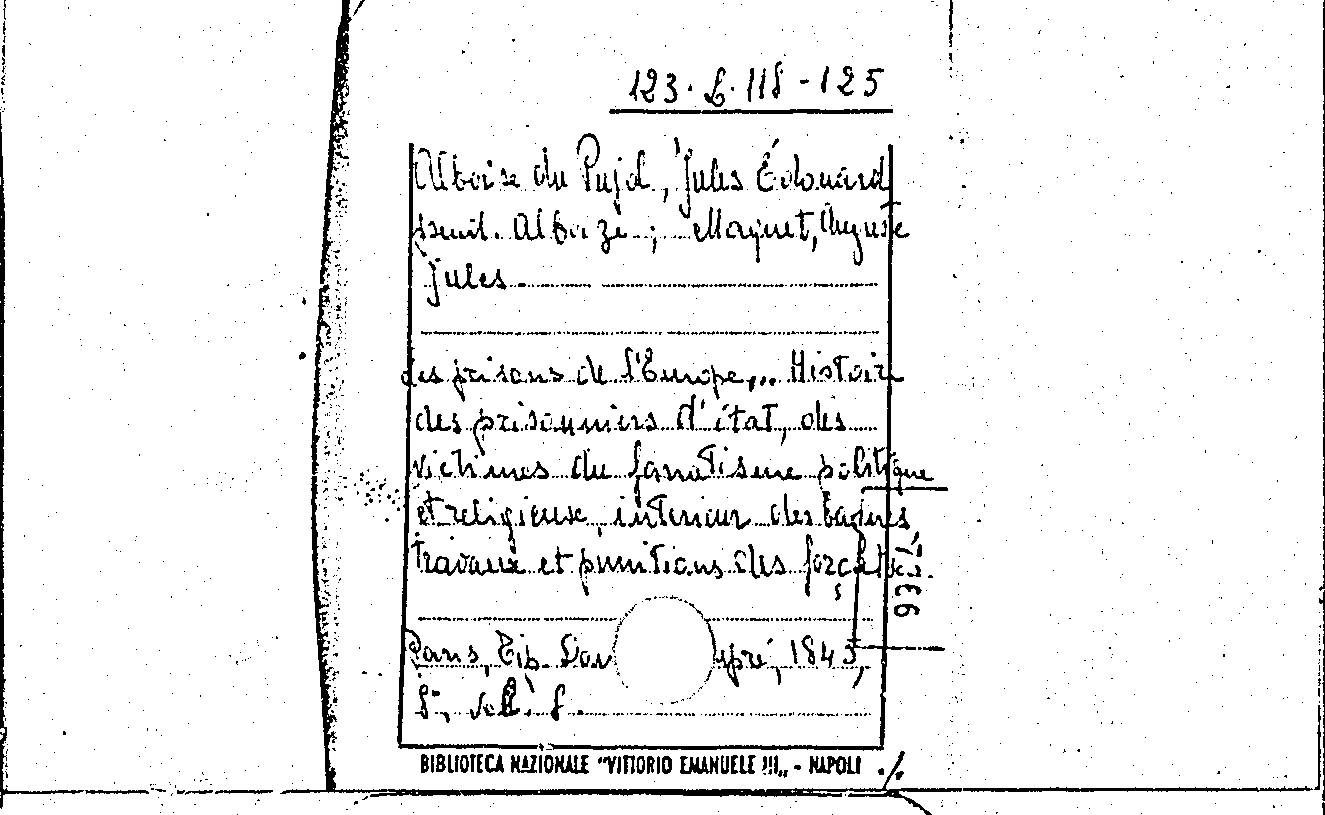 123. L. 118 - 125
Alboise du Pujol, Jules Édouard
pseud. Alboize ; Maquet, Auguste
Jules.
Les prisons de l'Europe,.. Histoire
des prisonniers d'état, des
victimes du fanatisme politique
et religieuse, interieur des bagnes
travaux et punitions des forçats.
Paris, Tip. pré, 1845,
8°, voll. 8.
BIBLIOTECA NAZIONALE "VITTORIO EMANUELE III„ - NAPOLI ./.